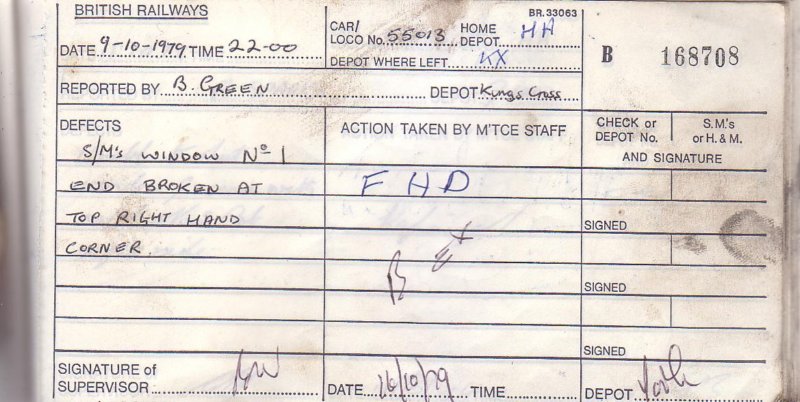 BRITISH RAILWAYS
BR.33063
DATE 9-10-1979 TIME 22-00
CAR/ LOCO No. 55013 HOME DEPOT HA
DEPOT WHERE LEFT KX
B 168708
REPORTED BY B. GREEN DEPOT Kings Cross
DEFECTS
ACTION TAKEN BY M'TCE STAFF
CHECK or DEPOT No.
S.M.'s or H. & M.
AND SIGNATURE
S/M's WINDOW No 1
END BROKEN AT
FHD
TOP RIGHT HAND
SIGNED
CORNER.
SIGNED
SIGNED
SIGNATURE of SUPERVISOR
DATE 16/10/79 TIME
DEPOT